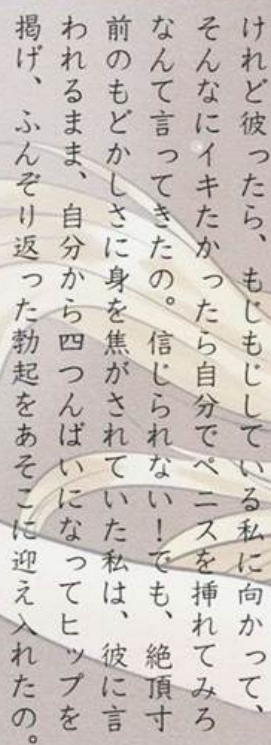 けれど彼ったら、もじもじしている私に向かって、
そんなにイキたかったら自分でペニスを挿れてみろ
なんて言ってきたの。信じられない！でも、絶頂寸
前のもどかしさに身を焦がされていた私は、彼に言
われるまま、自分から四つんばいになってヒップを
掲げ、ふんぞり返った勃起をあそこに迎え入れたの。